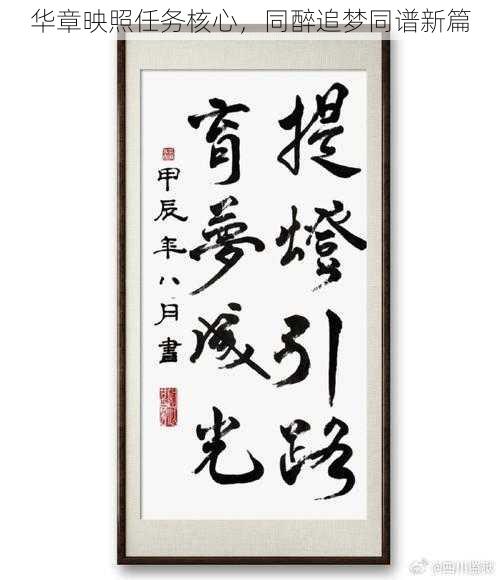 华章映照任务核心，同醉追梦同谱新篇
提燈引路
育夢成光
甲辰年八月書
@四川监狱